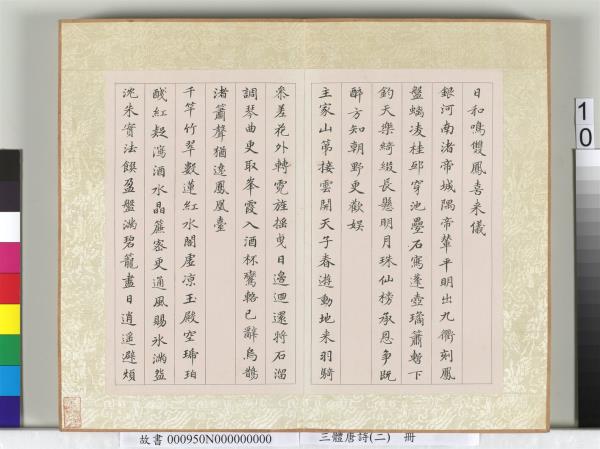 日和鳴雙鳳喜来儀
銀河南渚帝城隅帝輦平明出九衢刻鳳
盤螭凌桂邸穿池疊石寫蓬壺瓊簫暫下
鈞天樂綺綴長懸明月珠仙榜承恩争既
醉方知朝野更歡娱
主家山第接雲開天子春遊動地来羽騎
叅差花外轉霓旌摇曳日邊迴還將石溜
調琴曲更取峯霞入酒杯鸞輅已辭烏鵲
渚簫聲猶遶鳳凰臺
千竿竹翠數蓮紅水閣虚凉玉殿空琥珀
醆紅疑瀉酒水晶簾密更通風賜氷滿盌
沈朱實法饌盈盤滿碧籠盡日逍遥避煩
故書 000950N000000000
三體唐詩(二) 冊
10